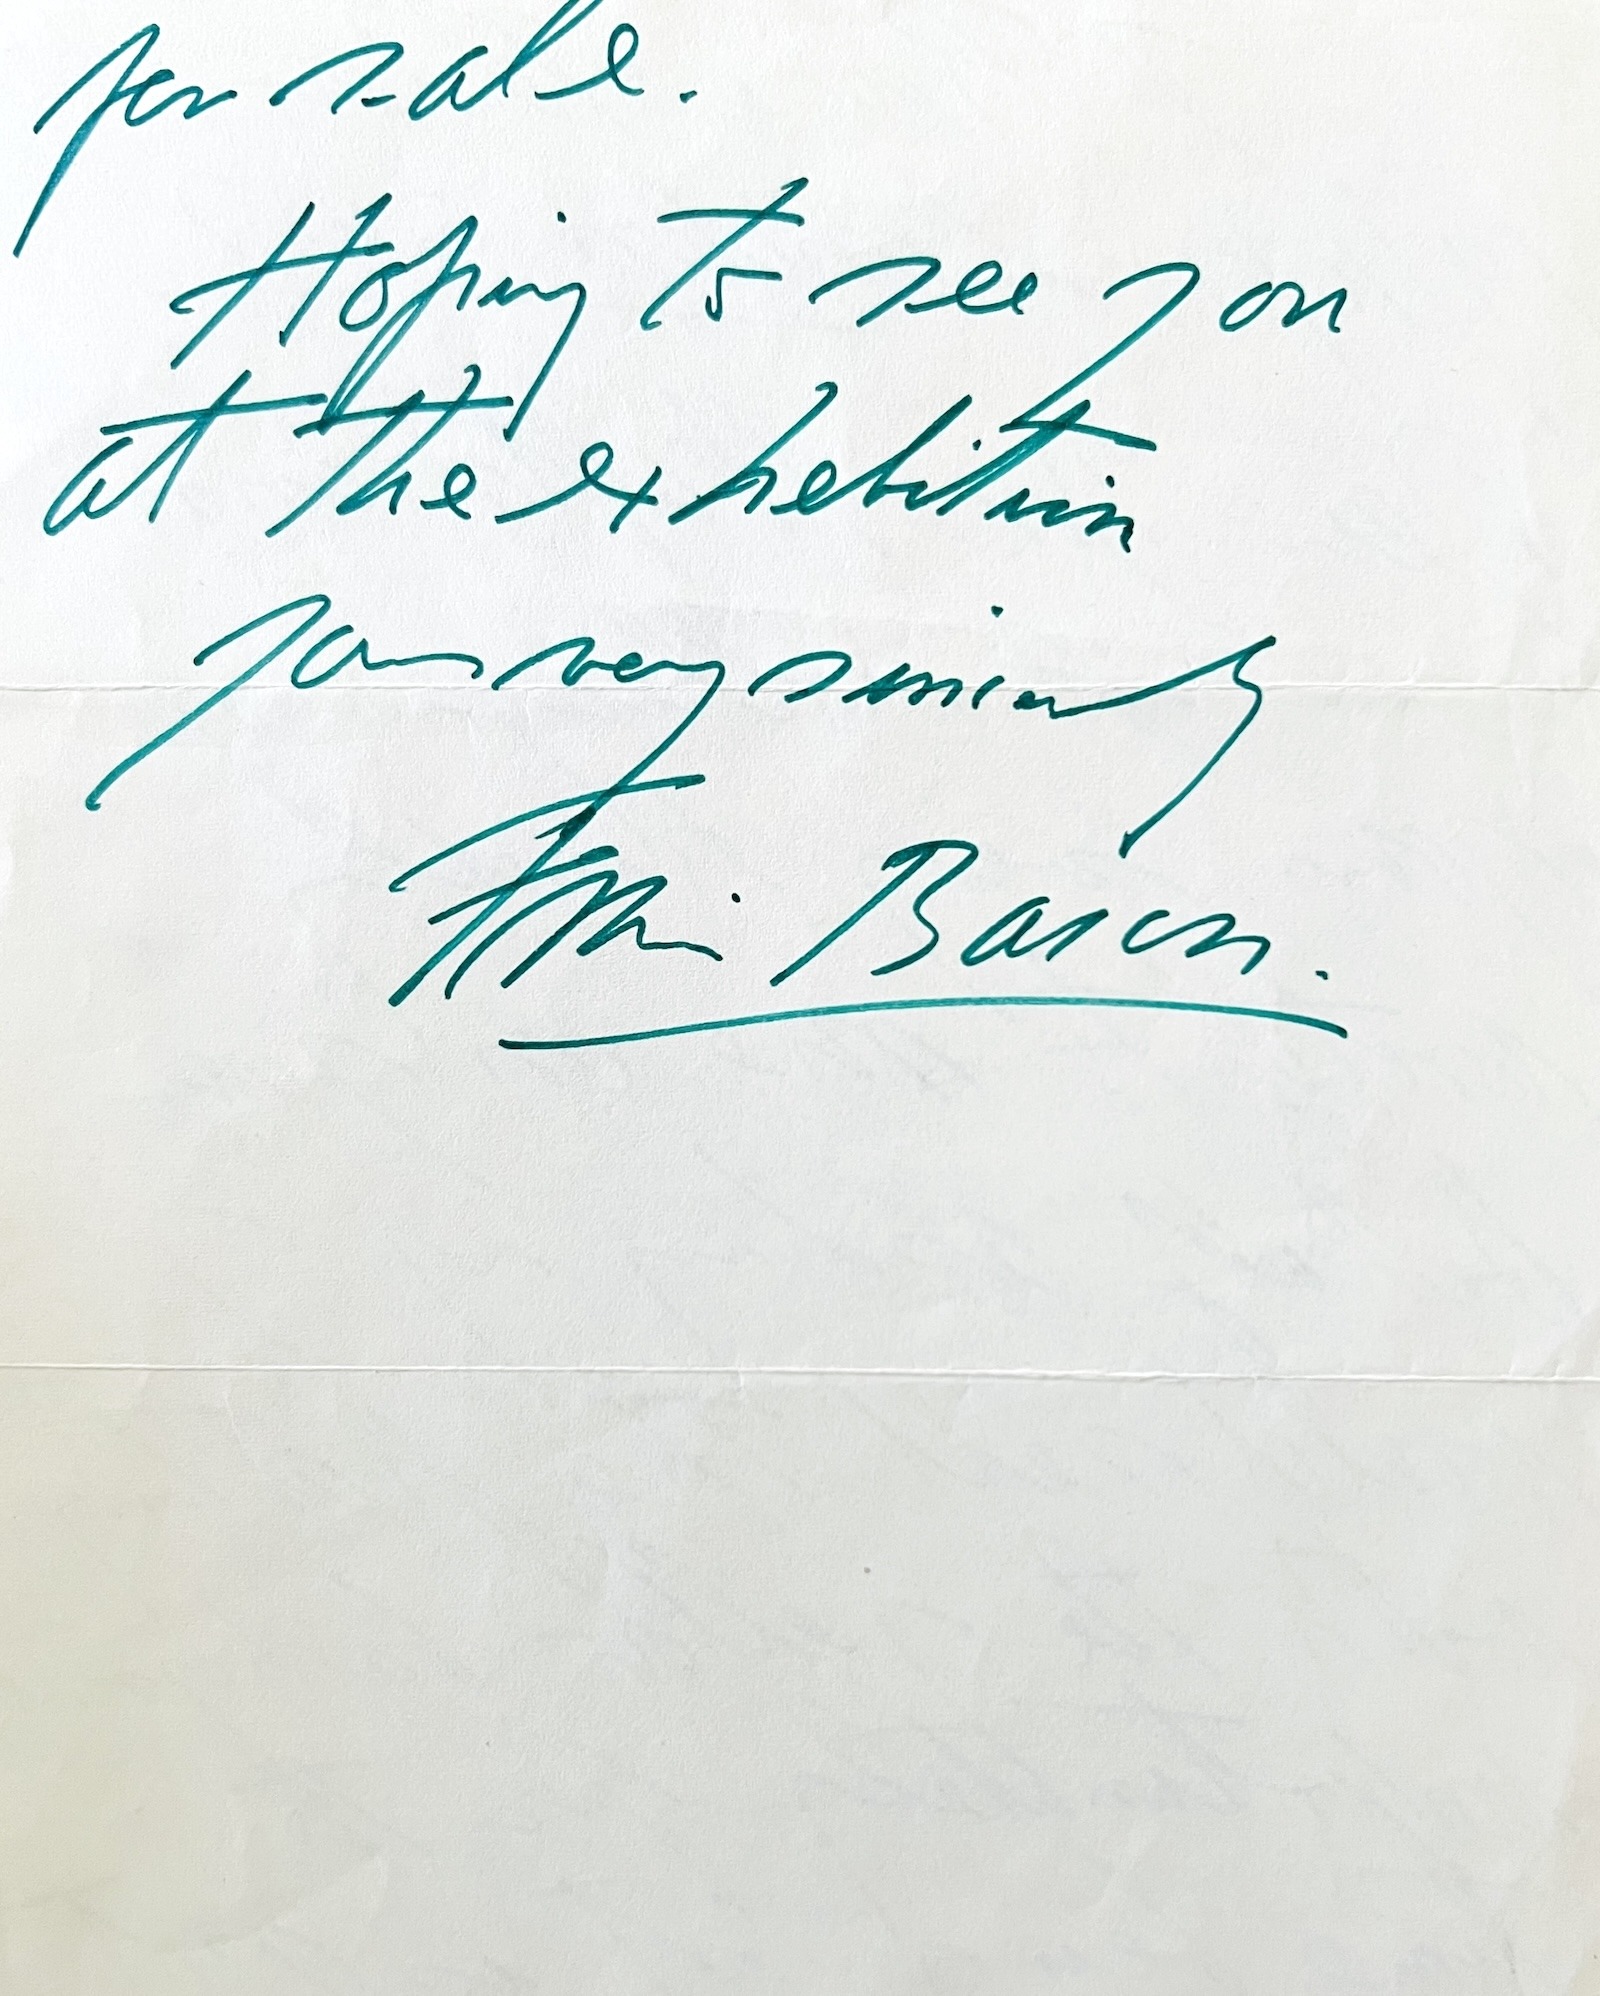 for sale.
Hoping to see you
at the exhibition
yours very sincerely
Baron.